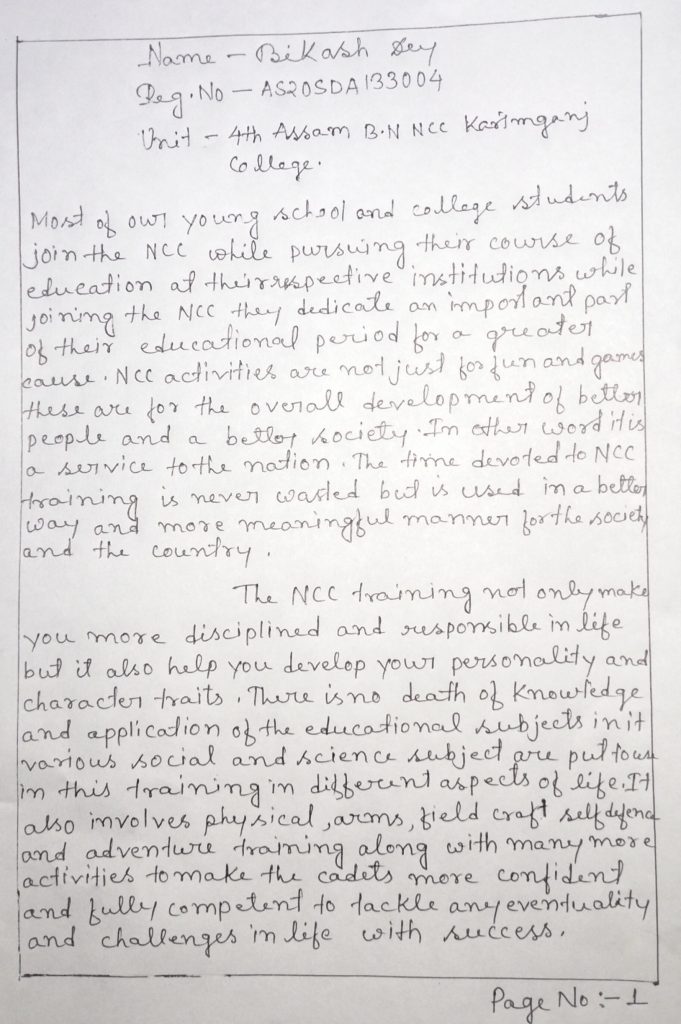 Name - Bikash Dey
Reg. No - AS20SDA133004
Unit - 4th Assam B.N NCC Karimganj
College.
Most of our young school and college students
join the NCC while pursuing their course of
education at their respective institutions while
joining the NCC they dedicate an important part
of their educational period for a greater
cause. NCC activities are not just for fun and games
these are for the overall development of better
people and a better society. In other word it is
a service to the nation. The time devoted to NCC
training is never wasted but is used in a better
way and more meaningful manner for the society
and the country.
The NCC training not only make
you more disciplined and responsible in life
but it also help you develop your personality and
character traits. There is no death of knowledge
and application of the educational subjects in it
various social and science subject are put to use
in this training in different aspects of life. It
also involves physical, arms, field craft self defence
and adventure training along with many more
activities to make the cadets more confident
and fully competent to tackle any eventuality
and challenges in life with success.
Page No :- 1